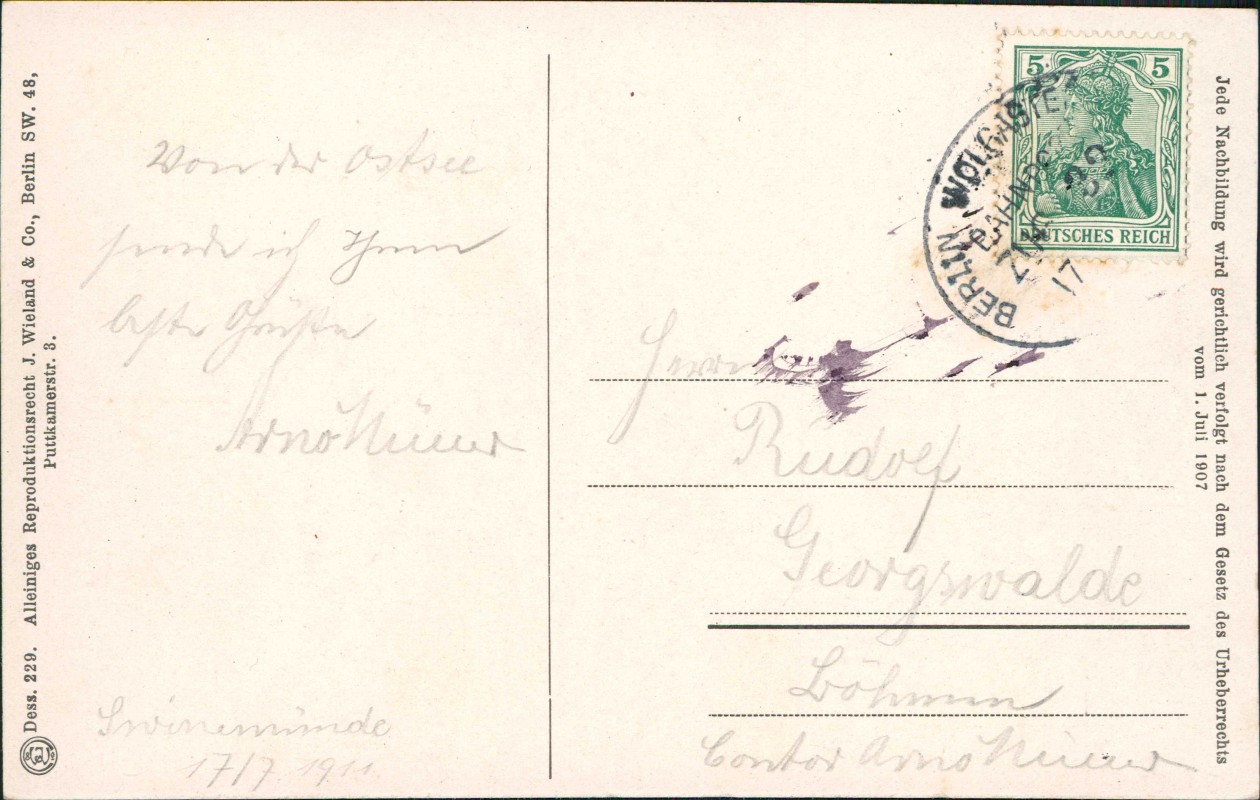 Dess. 229. Alleiniges Reproduktionsrecht J. Wieland & Co., Berlin SW. 48,
Puttkamerstr. 3.
Von der Ostsee
sende ich Ihnen
beste Grüße
Arno
Swinemünde
17/7 1911
5 5
DEUTSCHES REICH
BERLIN WOLGASTER
BAHNPOST
ZUG
17
Herrn
Rudolf
Georgswalde
Böhmen
Contor Arno
Jede Nachbildung wird gerichtlich verfolgt nach dem Gesetz des Urheberrechts
vom 1. Juli 1907